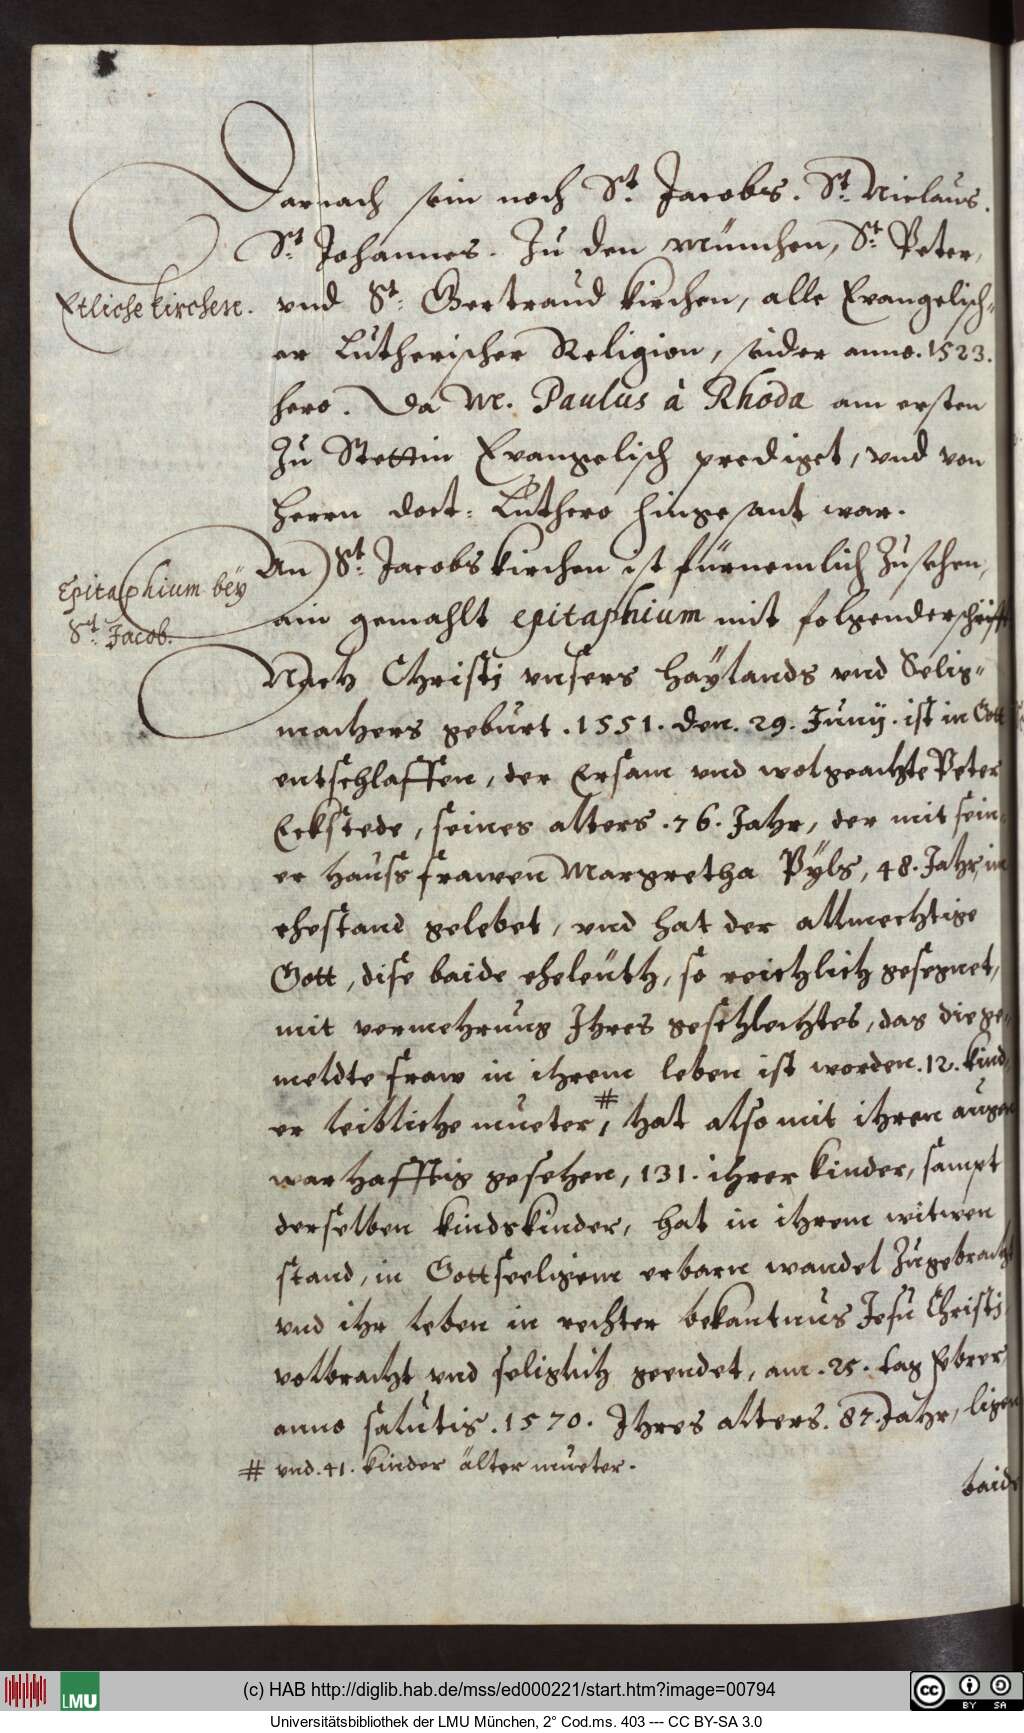 Darnach sein noch St. Jacobs. St. Niclaus.
St. Johannes. Zu den München, St. Peter,
Etliche kirchen.
vnd St. Gertraud kirchen, alle Evangelisch-
er Lutherischer Religion, sider anno. 1523.
hero. Da M. Paulus à Rhoda am ersten
zu Stettin Evangelisch prediget, vnd von
herrn doct: Luthero hingesant war.
Epitaphium beÿ
St. Jacob.
An St. Jacobs kirchen ist fürnemlich zusehen,
ain gemahlt epitaphium mit folgender schrifft
Nach Christi vnsers haÿlands vnd Selig-
machers geburt. 1551. den. 29. Junij. ist in Gott
entschlaffen, der Ersam vnd wolgeachte Peter
Eckstede, seines alters. 76. Jahr, der mit sein-
er haussfrawen Margretha Pÿls, 48. Jahr, im
ehestand gelebet, vnd hat der allmechtige
Gott, dise baide eheleüth, so reichlich gesegnet,
mit vermehrung Ihres geschlechtes, das die ge-
meldte fraw in ihrem leben ist worden. 12. kind-
er leibliche mueter, # hat also mit ihren augen
warhafftig gesehen, 131. ihrer kinder, sampt
derselben kindskinder, hat in ihrem witwen
stand, in Gottseeligem erbarn wandel zugebracht
vnd ihr leben in rechter bekantnus Jesu Christi,
volbracht vnd seliglich geendet, am. 25. tag febrer
anno salutis. 1570. Ihres alters. 87. Jahr, ligen
# vnd. 41. kinder älter mueter.
baide
(c) HAB http://diglib.hab.de/mss/ed000221/start.htm?image=00794
LMU
cc BY SA
Universitätsbibliothek der LMU München, 2° Cod.ms. 403 --- CC BY-SA 3.0